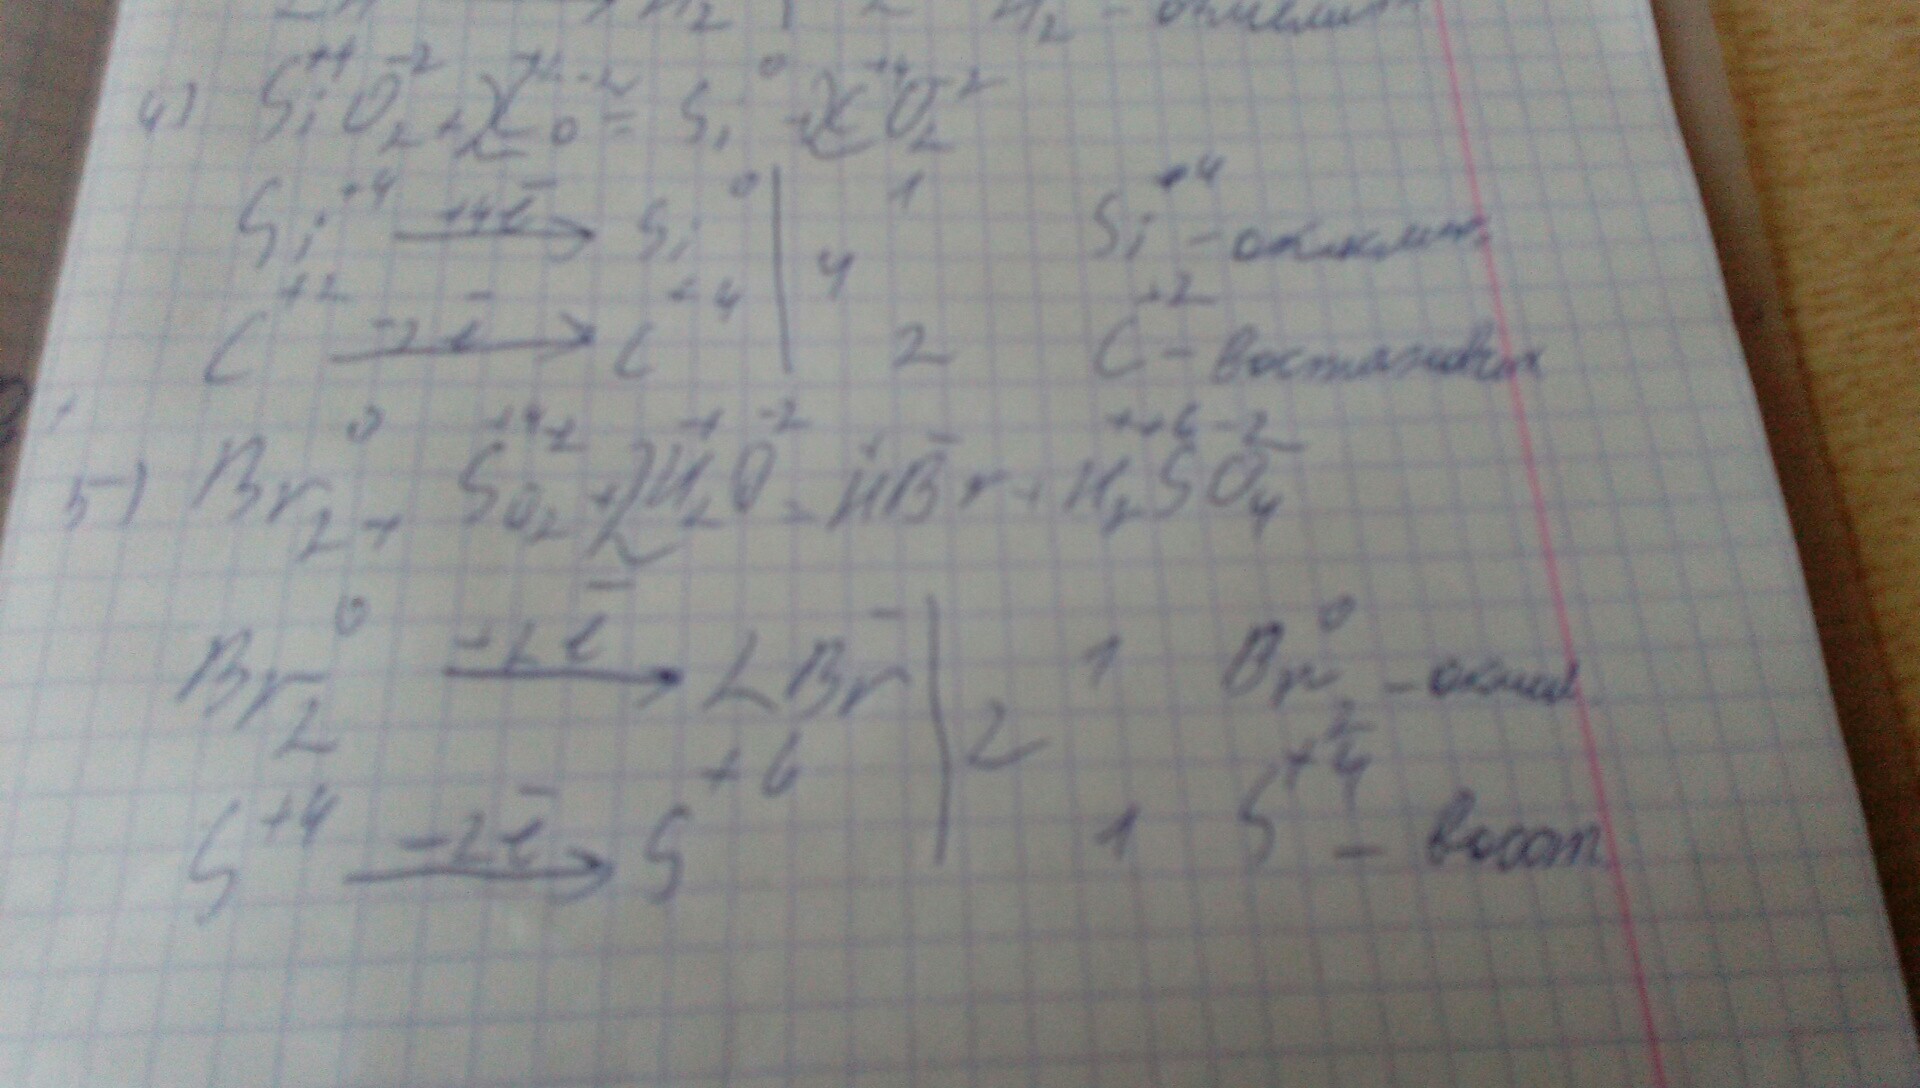 H₂ | 2 H₂ - окислит
4) Si⁺⁴O₂⁻² + 2C⁺²O⁻² = Si⁰ + 2C⁺⁴O₂⁻²
Si⁺⁴ +4e̅→ Si⁰ | 4 1 Si⁺⁴ - окислит.
C⁺² -2e̅→ C⁺⁴ | 2 C⁺² - востановит
5) Br₂⁰ + S⁺⁴O₂⁻² + 2H₂⁺O⁻² = H⁺Br⁻ + H₂⁺S⁺⁶O₄⁻²
Br₂⁰ +2e̅→ 2Br⁻ | 2 1 Br₂⁰ - окисл
S⁺⁴ -2e̅→ S⁺⁶ | 1 S⁺⁴ - восст